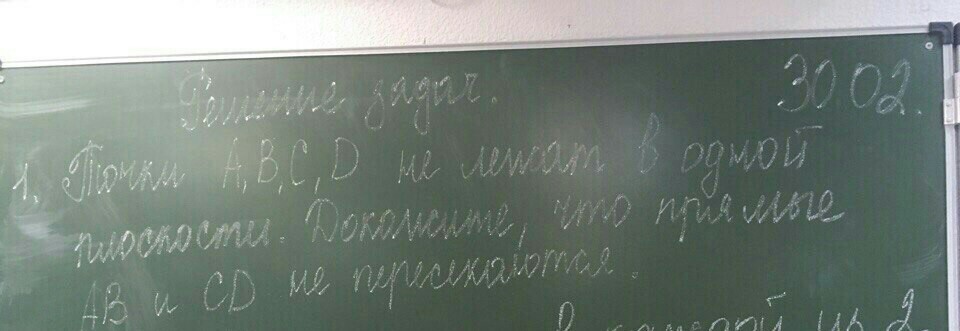 Решение задач. 30 02.
1. Точки A, B, C, D не лежат в одной
плоскости. Докажите, что прямые
AB и CD не пересекаются.